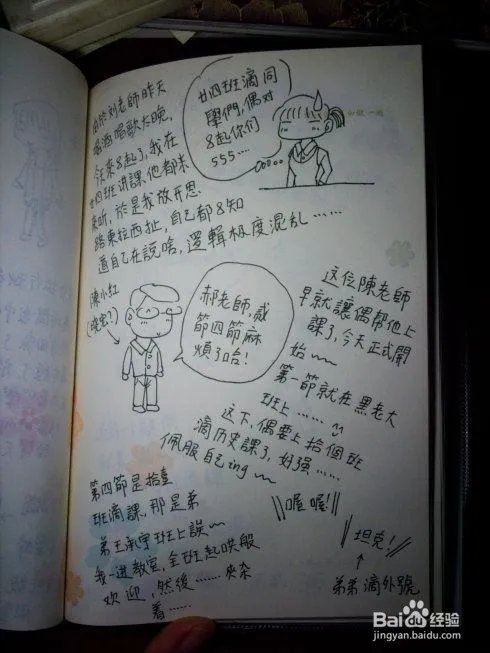 由於刘老師昨天
喝酒唱歌太晚,
今天來8起了,我在
廿四班讲課,他都未
來听,於是我放开思
路東拉西扯,自己都8知
道自己在說啥,邏輯极度混乱……
廿四班滴同
學們,偶对
8起你们
555……
陳小紅
郝老師,感
節四節麻
煩了哈!
这位陳老師
早就讓偶帮他上
課了,今天正式開
始~~
第一節就在黑老大
班上……
这下,偶要上拾個班
滴历史課了,好强……
佩服自己ing~~
第四節是拾壹
班滴課,那是弟
弟王承宇班上誒~
我一进教室,全班起哄般
欢迎,然後……夾杂
着……
喔喔!
坦克!
弟弟滴外號
Bai 百度 经验
jingyan.baidu.com